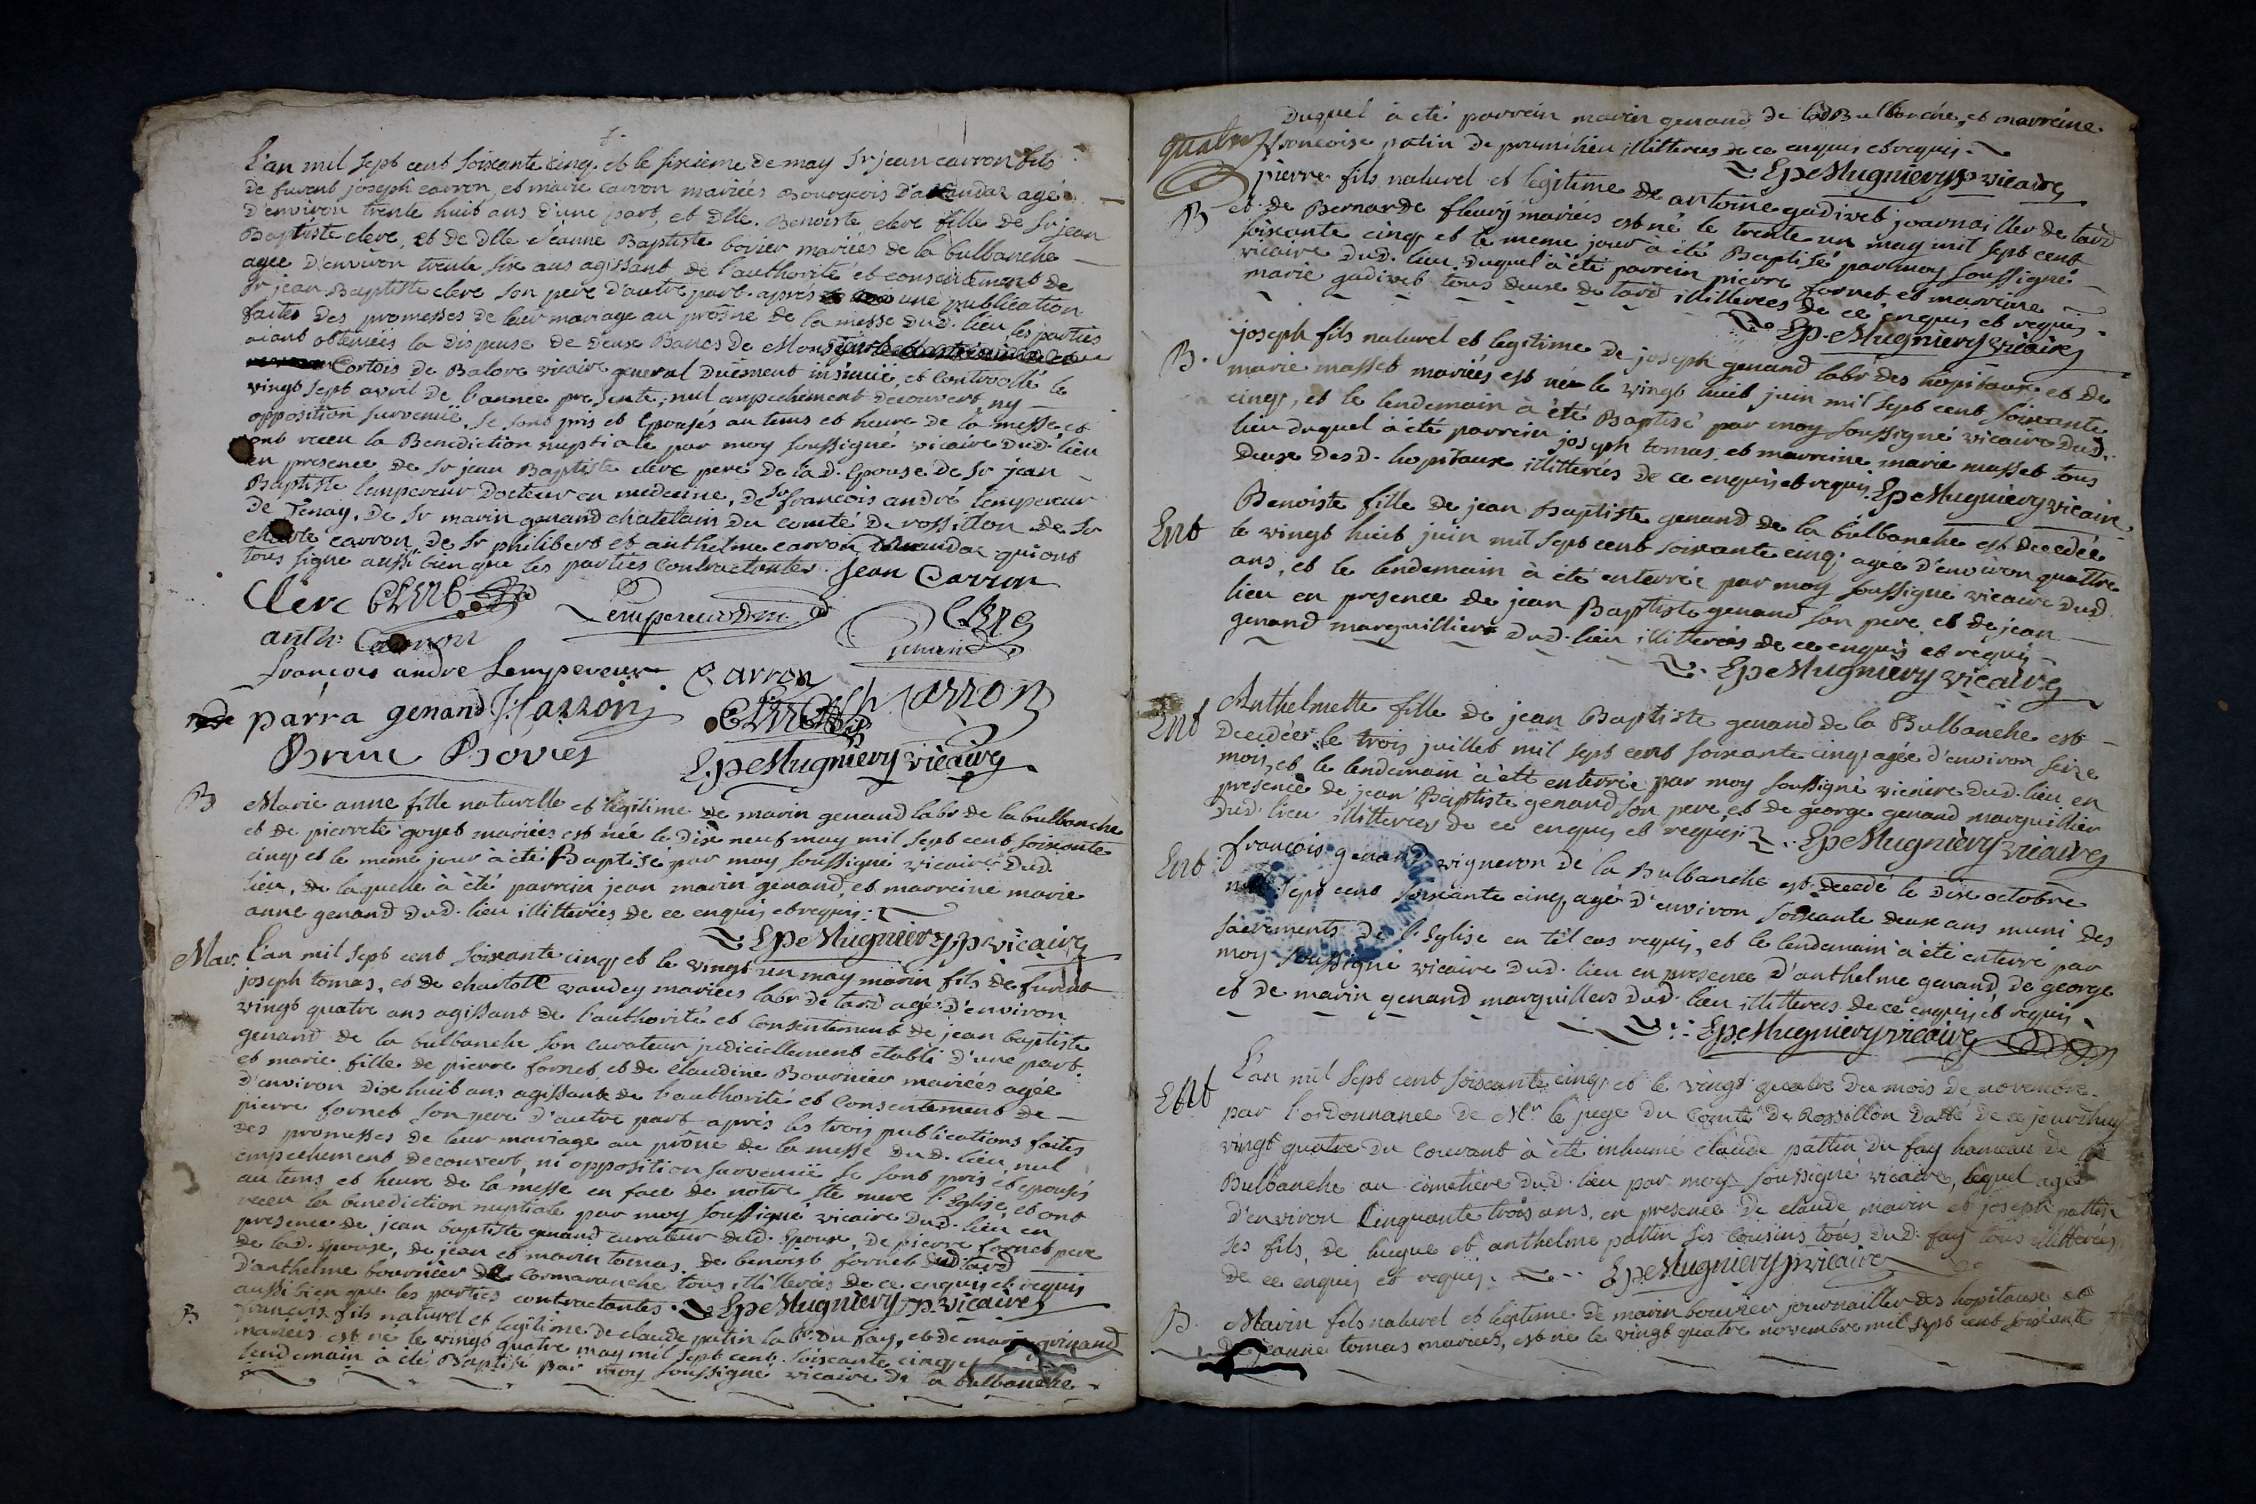 L'an mil sept cent soixante cinq et le sixieme de may Sr jean carron fils
de furent joseph carron, et marie carron mariées Bourgeois agé
d'environ trente huit ans d'une part, et Dlle. Benoiste clerc fille de Sr jean
Baptiste clerc, et de Dlle Jeanne Baptiste bovier mariées de la bulbanche
agee d'environ trente six ans agissant de l'authorité et consentement de
Sr jean Baptiste clerc son pere d'autre part. aprés une publication
faites des promesses de leur mariage au prosne de la messe dud. lieu les parties
aiant obtenües la dispense de deux Bancs de
Cortois de Balore vicaire general düement insinüé, et Controollé le
vingt sept avril de l'année presente; nul empechement decouvert ny
opposition survenüe, se sont pris et Epousés au tems et heure de la messe et
ont receu la Benediction nuptiale par moy soussigné vicaire dud. lieu
en presence de Sr jean Baptiste clerc pere de la d. Epouse de Sr jean
Baptiste Lempereur Docteur en medecine, de Sr francois andré lempereur
de Tenay, de Sr marin genand chatelain du comté de rossillon de Sr
carron, de Sr philibert et anthelme carron qui ont
tous signe aussi bien que les parties contractantes. Jean Carron
Clerc Clerc Lempereur Clerc
anth: Carron genand
francois andre Lempereur Carron
parra genand J: Carron Carron
Brune Bovier E. pe Mugniery vicaire
B Marie anne fille naturelle et legitime de marin genand labr de la bulbanche
et de pierrete goyet mariées est née le dix neuf may mil sept cent soixante
cinq et le même jour à été Baptisé par moy soussigné vicaire dud.
lieu, de laquelle à été parrein jean marin genand, et marreine marie
anne genand dud. lieu illitterées de ce enquis et requis.
E pe Mugniery p. vicaire
Mar. L'an mil sept cent soixante cinq et le vingt un may marin fils de furent
joseph tomas, et de charlotte vaudey mariees labr de tard agé d'environ
vingt quatre ans agissant de l'authorité et consentement de jean baptiste
genand de la bulbanche son curateur judiciellement etabli d'une part.
et marie fille de pierre fornet et de claudine Bournier mariées agée
d'environ dix huit ans agissante de l'authorité et Consentement de
pierre fornet son pere d'autre part après les trois publications faites
des promesses de leur mariage au prône de la messe dud. lieu, nul
empechement decouvert, ni opposition survenüe se sont pris et epousés
au tems et heure de la messe en face de notre Ste mere l'Eglise, et ont
receu la benediction nuptiale par moy soussigné vicaire dud. lieu en
presence de jean baptiste genand curateur dud. Epoux, de pierre fornet pere
de lad. Epouse, de jean et marin tomas, de benoist fornet dud tard
d'anthelme bournier de Cormaranche tous illitterées de ce enquis et requis
aussi bien que les parties contractantes. E pe Mugniery p. vicaire
B francois fils naturel et legitime de claude patin labr. du fay, et de marie guinand
mariées est né le vingt quatre may mil sept cent soixante cinq, et
lendemain à été Baptisé par moy soussigné vicaire de la bulbanche
Duquel à eté parrein marin genand de lad Bulbanche, et marreine
quatre francoise patin de prunilieu illitterees de ce enquis et requis.
E pe Mugniery p. vicaire
pierre fils naturel et legitime de antoine gadivet journaillier de tard
B et de Bernarde fleury mariées est né le trente un may mil sept cent
soixante cinq et le meme jour à été Baptisé par moy soussigné
vicaire dud. lieu duquel à été parrein pierre fornet et marreine
marie gadivet tous deux de tard illitterees de ce enquis et requis.
E p. e Mugniery vicaire
joseph fils naturel et legitime de joseph genand labr des hopitaux, et de
B. marie masset mariées est né le vingt huit juin mil sept cent soixante
cinq, et le lendemain à été Baptisé par moy soussigné vicaire dud.
lieu duquel à eté parrein joseph tomas et marreine marie masset tous
deux desd. hopitaux illitterées de ce enquis et requis. E pe Mugniery vicaire
Benoiste fille de jean Baptiste genand de la bulbanche est decedée
Ent le vingt huit juin mil sept cent soixante cinq, agée d'environ quattre
ans, et le lendemain à été enterrée par moy soussigné vicaire dud.
lieu en presence de jean Baptiste genand son pere et de jean
genand marguillier dud. lieu illitterées de ce enquis et requis
E pe Mugniery vicaire
Anthelmette fille de jean Baptiste genand de la Bulbanche est
Ent decedée le trois juillet mil sept cent soixante cinq agée d'environ seize
mois, et le lendemain à été enterrée par moy soussigné vicaire dud. lieu en
presence de jean Baptiste genand son pere et de george genand marguillier
dud. lieu illitterees de ce enquis et requis. E pe Mugniery vicaire
Ent françois genand vigneron de la Bulbanche est decedé le dix octobre
mil sept cent soixante cinq agé d'environ soixante deux ans muni des
sacrements de l'Eglise en tel cas requis, et le lendemain à été enterré par
moy soussigné vicaire dud. lieu en presence d'anthelme genand de george
et de marin genand marguilliers dud. lieu illitterees de ce enquis et requis
E pe Mugniery vicaire
L'an mil sept cent soixante cinq et le vingt quatre du mois de novembre
Ent par l'ordonnance de Mr. le juge du Comté de Rossillon datté de ce jourdhuy
vingt quatre du courant à été inhumé claude pattin du fay hameau de la
Bulbanche au cimetière dud. lieu par moy soussigné vicaire, lequel agé
d'environ Cinquante trois ans, en presence de claude marin et joseph pattin
ses fils, de et anthelme pattin ses cousins tous dud. fay tous illitterés
de ce enquis et requis. E pe Mugniery p vicaire
B. Marin fils naturel et legitime de marin bouvier journaillier des hopitaux et
de jeanne tomas mariees, est né le vingt quatre novembre mil sept cent soixante